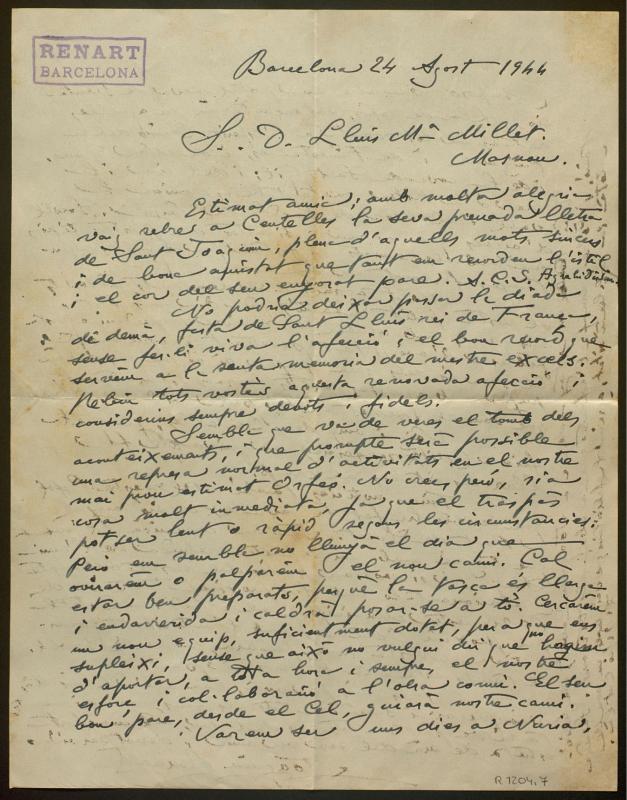 RENART
BARCELONA
Barcelona 24 Agost 1944
S. D. Lluis Mª Millet.
Masnou.
Estimat amic; amb molta alegria
vaig rebre a Centelles la seva preuada lletra
de Sant Joaquim, plena d'aquelles mots sincers
i de bona amistat que tant em recorden l'estil
i el cor del seu enyorat pare. A.C.S.
No podria deixar passar la diada
de demà, festa de Sant Lluis rei de França,
sense fer-li viva l'afecció i el bon record que
servem a la santa memoria del mestre excels.
Rebin tots vostès aquesta renovada afecció i
considerins sempre devots i fidels.
Sembla que va de veres el tomb dels
aconteixements, i que prompte serà possible
una represa normal d'activitats en el nostre
mai prou estimat Orfeó. No crec però, sia
cosa molt inmediata, ja que el traspàs
pot ser lent o ràpid segons les circumstancies.
Però em sembla no llunyà el dia que
ovirarem o palparem el nou camí. Cal
estar ben preparats, perquè la tasca és llarga
i endarrerida i caldrà posar-se a tò. Cercarem
un nou equip, suficientment dotat, pera que ens
supleixi, sense que això no vulgui dir que no hagim
d'aportar, a tota hora i sempre, el nostre
esforç i col·laboració a l'obra comú. El seu
bon pare, desde el Cel, guiarà nostre camí.
Varem ser uns dies a Nuria,
R.1204.7